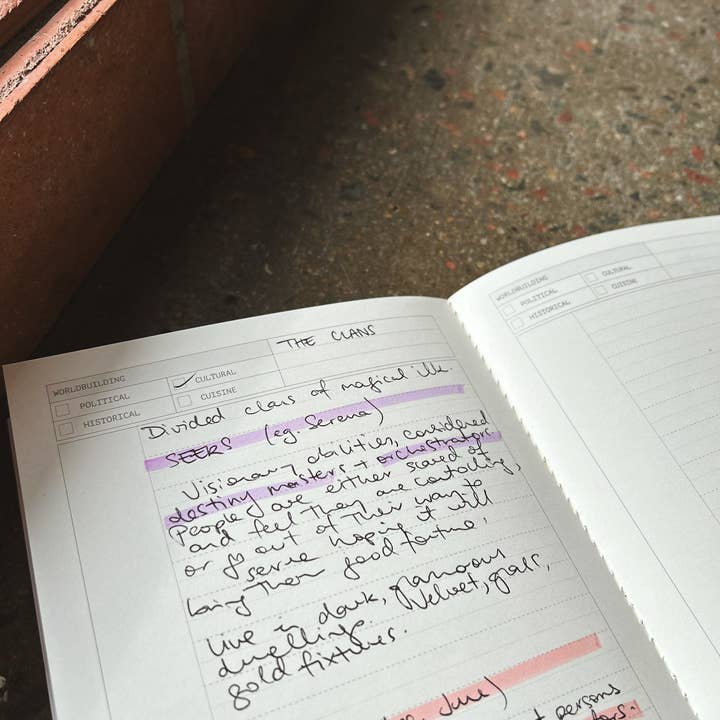 WORLDBUILDING
POLITICAL
CULTURAL
HISTORICAL
CUISINE
THE CLANS
Divided class of magical ilk.
SEERS (eg. Serena)
Visionary abilities, considered
destiny masters + orchestrators.
People are either scared of
and feel they are controlling,
or go out of their way to
serve hoping it will
bring them good fortune.
Live in dark, glamorous
dwellings. Velvet, glass,
gold fixtures.
June)
persons
WORLDBUILDING
POLITICAL
CULTURAL
HISTORICAL
CUISINE